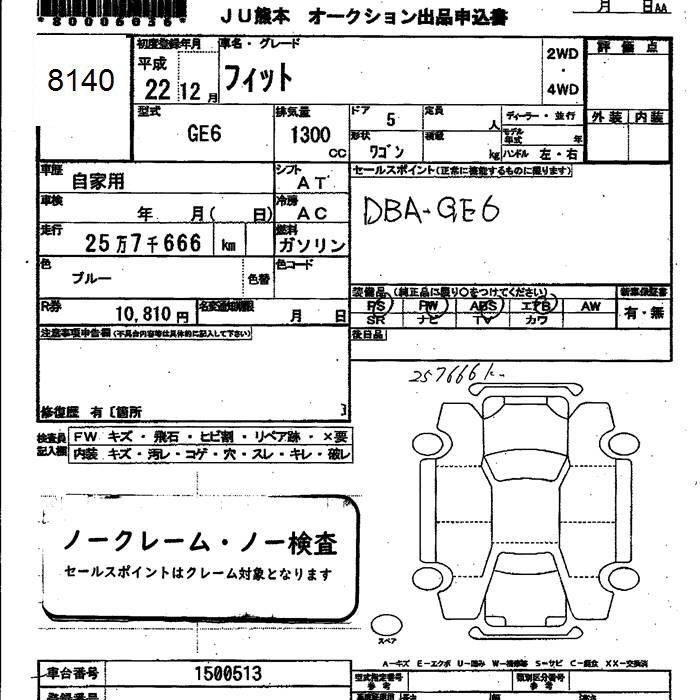 *80006036*
JU熊本 オークション出品申込書
月 日AA
8140
初度登録年月 車名・グレード
平成
22 12月 フィット
2WD
・
4WD
評価点
外装 内装
型式 GE6
排気量 1300 CC
ドア 5 定員 人
形状 ワゴン 積載 kg
ディーラー・並行
モデル年式 年
ハンドル 左・右
車歴 自家用
シフト AT
セールスポイント(正常に機能するものに限ります)
DBA-GE6
車検 年 月( 日)
冷房 AC
走行 25万7千666 km
燃料 ガソリン
色 ブルー 色替
色コード
装備品 (純正品に限り○をつけてください)
新車保証書
PS PW ABS エアB AW
SR ナビ TV カワ
有・無
R券 10,810円
名変通知期限 月 日
後日品
注意事項申告欄(不具合内容等は具体的に記入して下さい)
257666km
修復歴 有〔箇所 〕
検査員記入欄
FW キズ・飛石・ヒビ割・リペア跡・×要
内装 キズ・汚レ・コゲ・穴・スレ・キレ・破レ
ノークレーム・ノー検査
セールスポイントはクレーム対象となります
スペア
A-キズ E-エクボ U-凹み W-補修跡 S-サビ C-腐食 XX-交換済
車台番号 1500513
型式指定番号
参考
類別区分番号
参考
登録番号